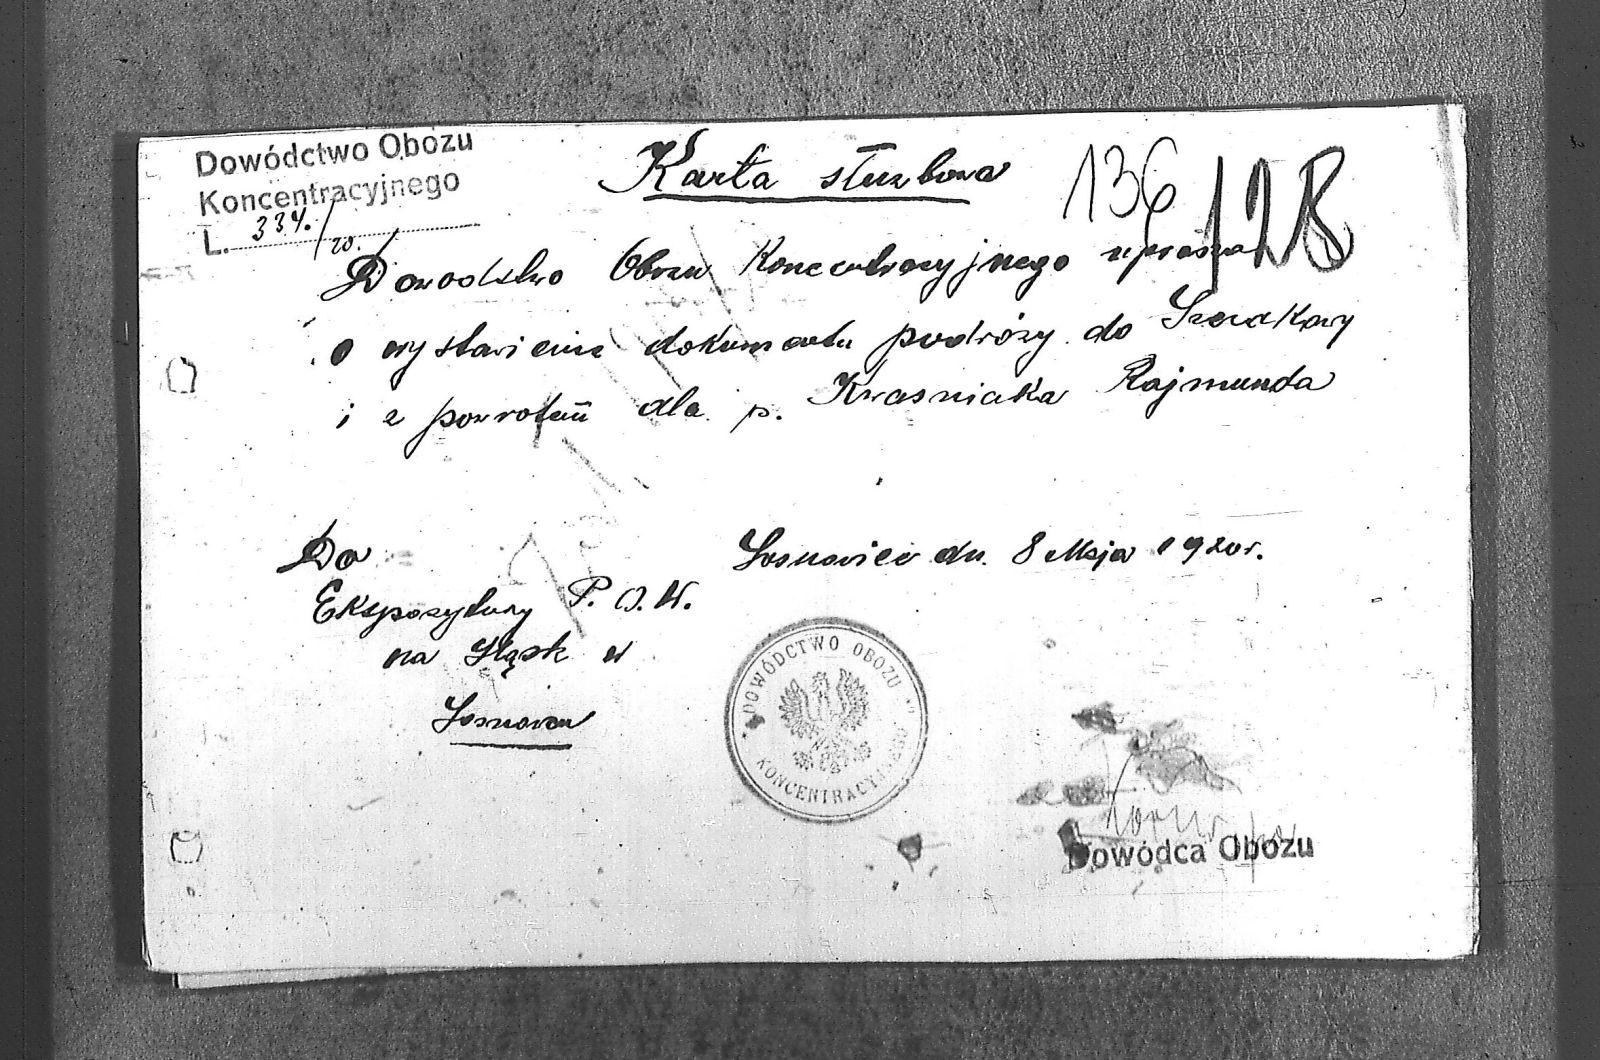 Dowództwo Obozu
Koncentracyjnego
L. 334./20.
Karta służbowa
136
128
Dowodztwo Obozu Koncentracyjnego uprasza
o wystawienie dokumentu podróży do Szczakowy
i z powrotem dla p. Kwasniaka Rajmunda
Do
Ekspozytury P. O. W.
na Śląsk w
Sosnowcu
Sosnowiec dn. 8 Maja 1920r.
DOWÓDZTWO OBOZU
KONCENTRACYJNEGO
Dowódca Obozu